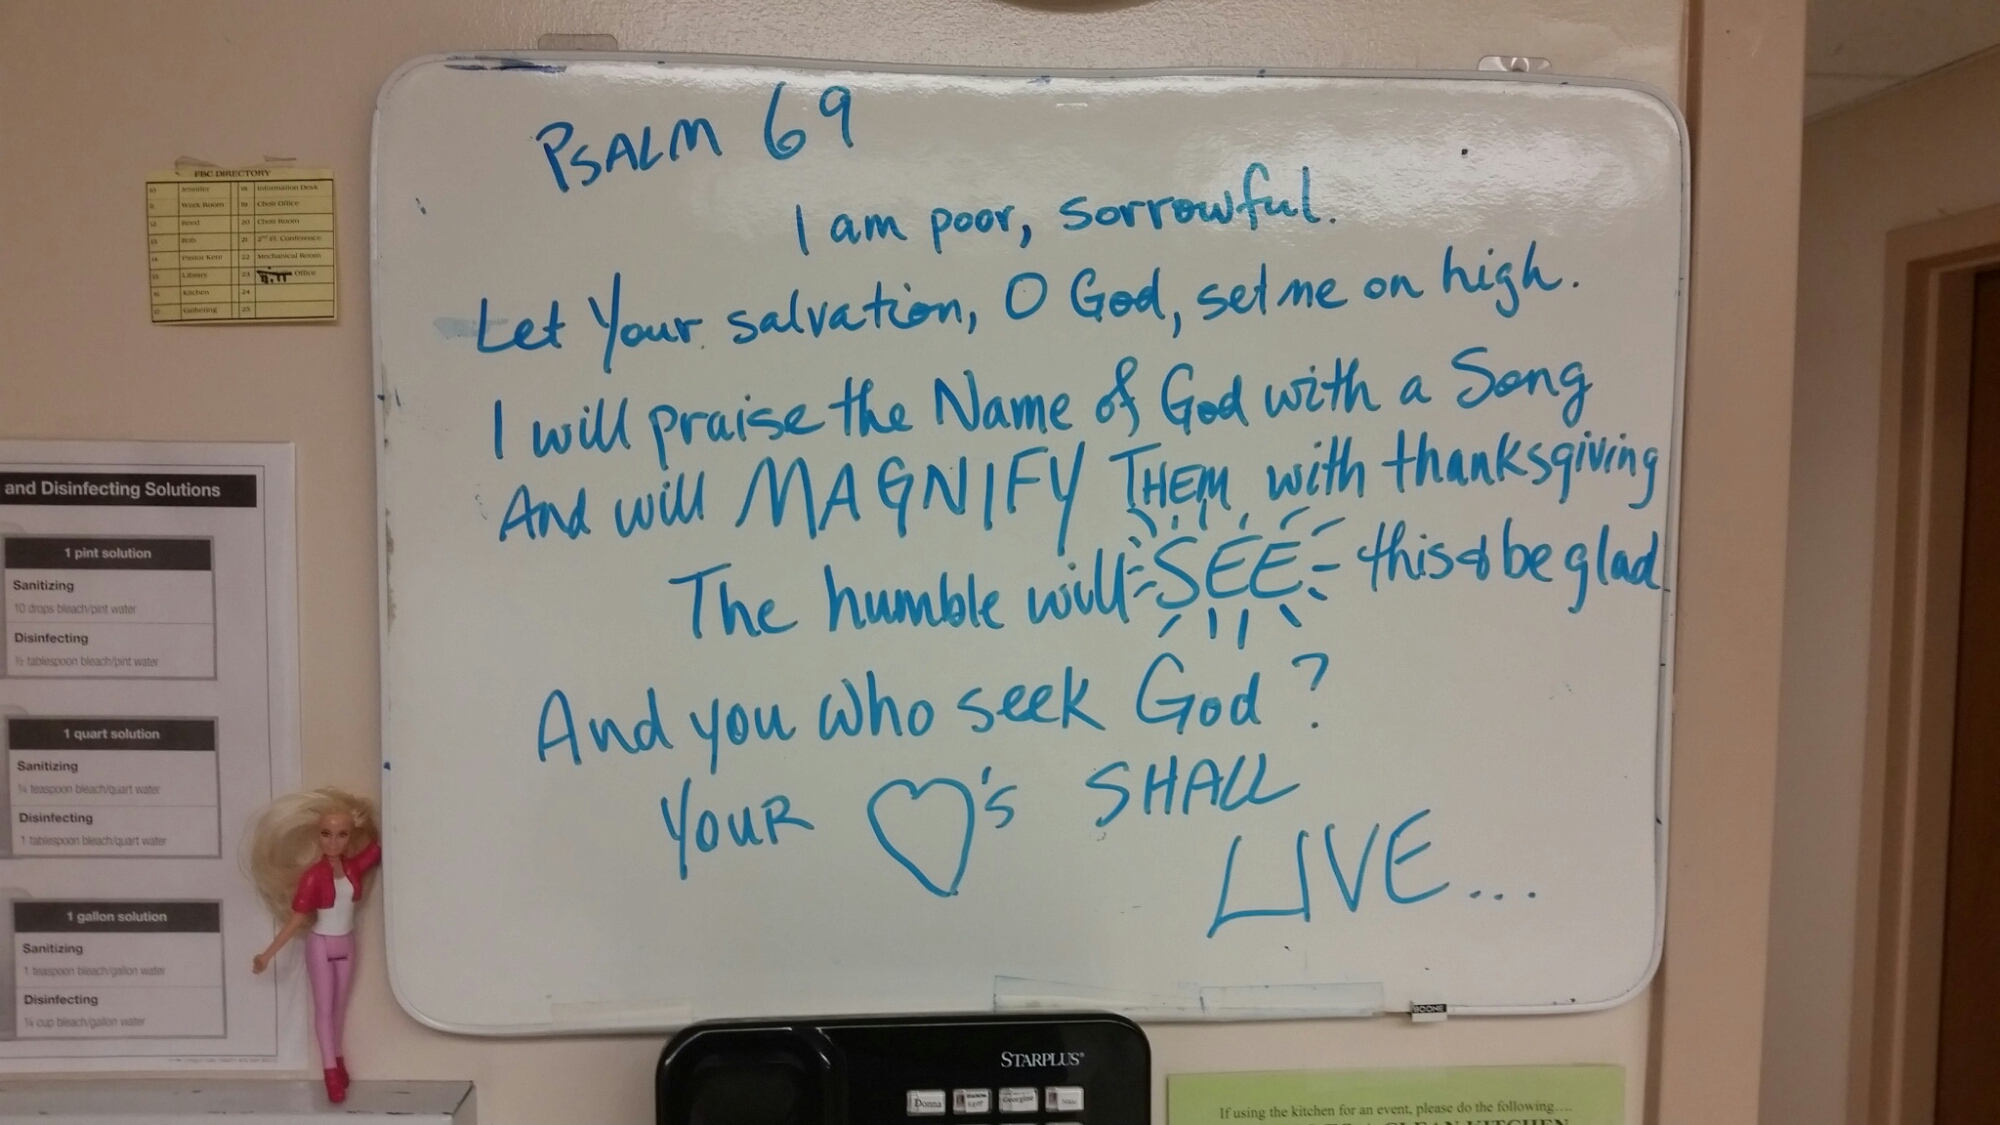 PSALM 69
I am poor, sorrowful.
Let Your salvation, O God, set me on high.
I will praise the Name of God with a Song
And will MAGNIFY THEM with thanksgiving
The humble will SEE this & be glad
And you who seek God?
YOUR ♡'s SHALL
LIVE...
FBC DIRECTORY
10 Jennifer 18 Information Desk
11 Work Room 19 Choir Office
12 Reed 20 Choir Room
13 Rob 21 2nd Fl. Conference
14 Pastor Kent 22 Mechanical Room
15 Library 23 Office
16 Kitchen 24
17 Gathering 25
and Disinfecting Solutions
1 pint solution
Sanitizing
10 drops bleach/pint water
Disinfecting
½ tablespoon bleach/pint water
1 quart solution
Sanitizing
¼ teaspoon bleach/quart water
Disinfecting
1 tablespoon bleach/quart water
1 gallon solution
Sanitizing
1 teaspoon bleach/gallon water
Disinfecting
¼ cup bleach/gallon water
BOONE
STARPLUS
Donna
Georgine
If using the kitchen for an event, please do the following....
A CLEAN KITCHEN